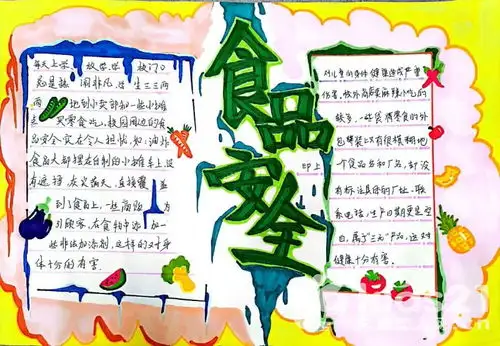 每天上学 放学学 校门口
总是热 闹非凡, 学生三三两
两 地到小卖部和一些小摊
买零食吃, 校园周边的食
品安全实在令人担忧, 如: 油炸
食品大部摆在自制的小摊车上, 没
有遮掩, 灰尘满天, 直接覆盖
到食品上, 一些商贩 为
引顾客, 在食物中添加一
些非法添加剂, 这样的对身
体十分的有害.
食品安全
对儿童的身体健康造成严重
伤害. 校外商店卖麻辣小吃的
较多, 一好装满零食的外
包装袋上又有很模糊地
印上 个食品名和厂名, 却没
有标注具体的厂址、联
系电话, 生产日期更是空
白, 属于"三无"产品, 这对
健康十分有害.